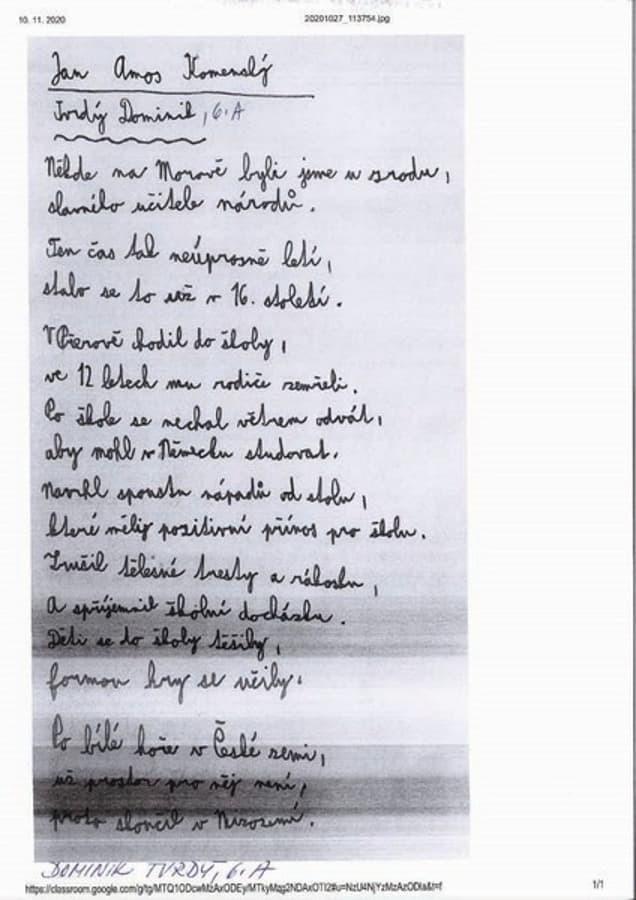 10. 11. 2020
20201027_113754.jpg
Jan Amos Komenský
Tvrdý Dominik, 6.A
Někde na Moravě byli jsme u zrodu,
slavného učitele národů.
Ten čas tak neúprosně letí,
stalo se to už v 16. století.
V Přerově chodil do školy,
ve 12 letech mu rodiče zemřeli.
Po škole se nechal větrem odvát,
aby mohl v Německu studovat.
Navrhl spoustu nápadů od stolu,
které měly pozitivní přínos pro školu.
Zrušil tělesné tresty a rákosku,
A zpříjemnil školní docházku.
Děti se do školy těšily,
formou hry se učily.
Po bílé hoře v České zemi,
už prostor pro něj není,
proto skončil v Nizozemí.
DOMINIK TVRDÝ, 6.A
1/1